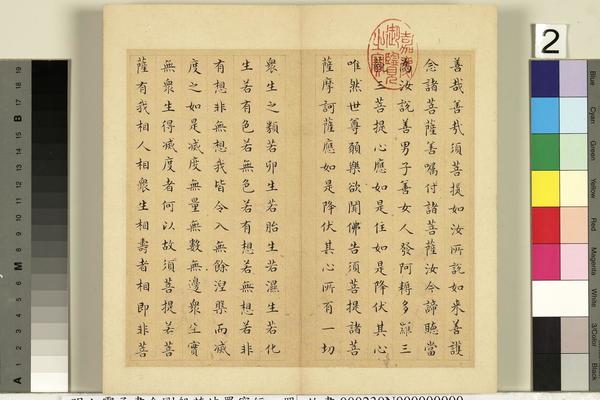 善哉善哉須菩提如汝所說如來善護
念諸菩薩善囑付諸菩薩汝今諦聽當
為汝說善男子善女人發阿耨多羅三
藐三菩提心應如是住如是降伏其心
唯然世尊願樂欲聞佛告須菩提諸菩
薩摩訶薩應如是降伏其心所有一切
眾生之類若卵生若胎生若濕生若化
生若有色若無色若有想若無想若非
有想非無想我皆令入無餘涅槃而滅
度之如是滅度無量無數無邊眾生實
無眾生得滅度者何以故須菩提若菩
薩有我相人相眾生相壽者相即非菩
嘉慶御覽之寶
2
Blue
Cyan
Green
Yellow
Red
Magenta
White
3/Color
Black
A
M
B